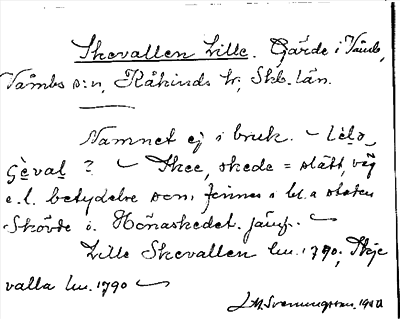 Skevallen Lille. Gärde i Våmb,
Våmbs s:n, Kåkinds hr, Skb. län.
Namnet ej i bruk. – Lèlə
Gèvaḷ ? – Skee, skede = slätt, väg
e.l. betydelse som finnes i bl.a staden
Skövde i. Hönaskedet. jämf. –
Lille Skevallen lm. 1790, Skje
valla lm. 1790 –
Svenningson. 1900